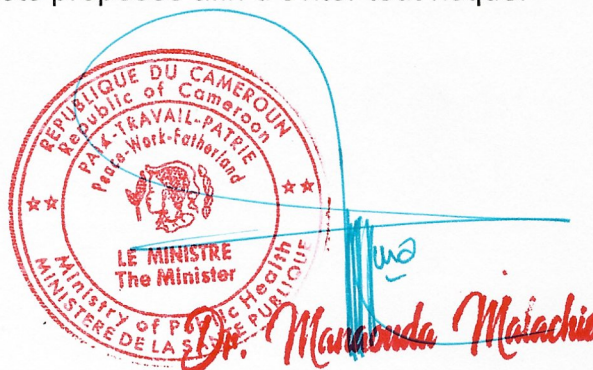 RÉPUBLIQUE DU CAMEROUN
Republic of Cameroon
PAIX-TRAVAIL-PATRIE
Peace-Work-Fatherland
LE MINISTRE
The Minister
Ministry of Public Health
MINISTERE DE LA SANTE PUBLIQUE
Dr. Manaouda Malachie